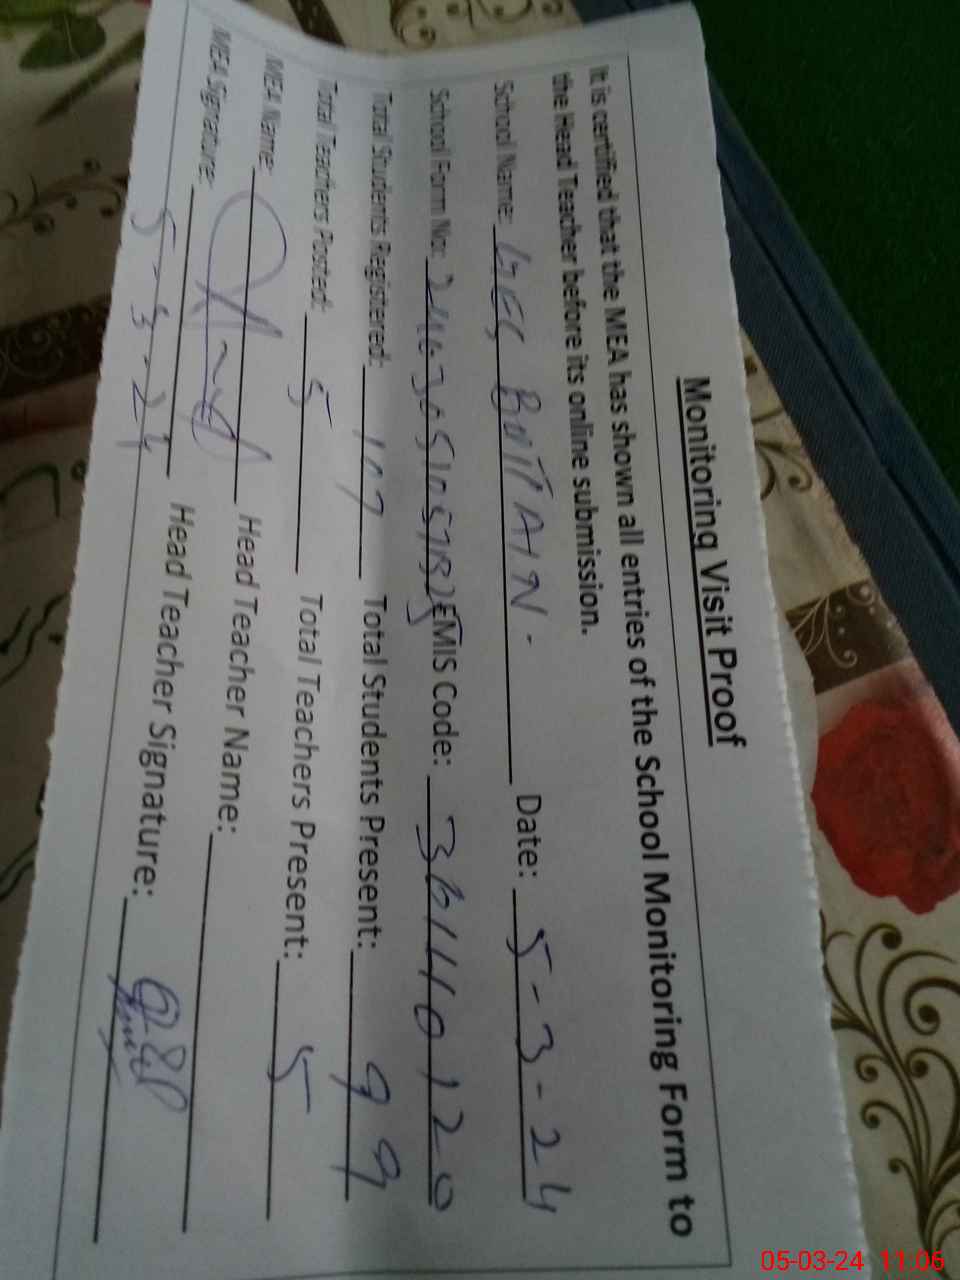 Monitoring Visit Proof
It is certified that the MEA has shown all entries of the School Monitoring Form to
the Head Teacher before its online submission.
School Name: GES BOTTAIN - Date: 5-3-24
School Form No: EMIS Code:
Total Students Registered: 107 Total Students Present: 99
Total Teachers Posted: 5 Total Teachers Present: 5
MEA Name: Head Teacher Name:
MEA Signature: Head Teacher Signature:
5-3-24
05-03-24 11:06